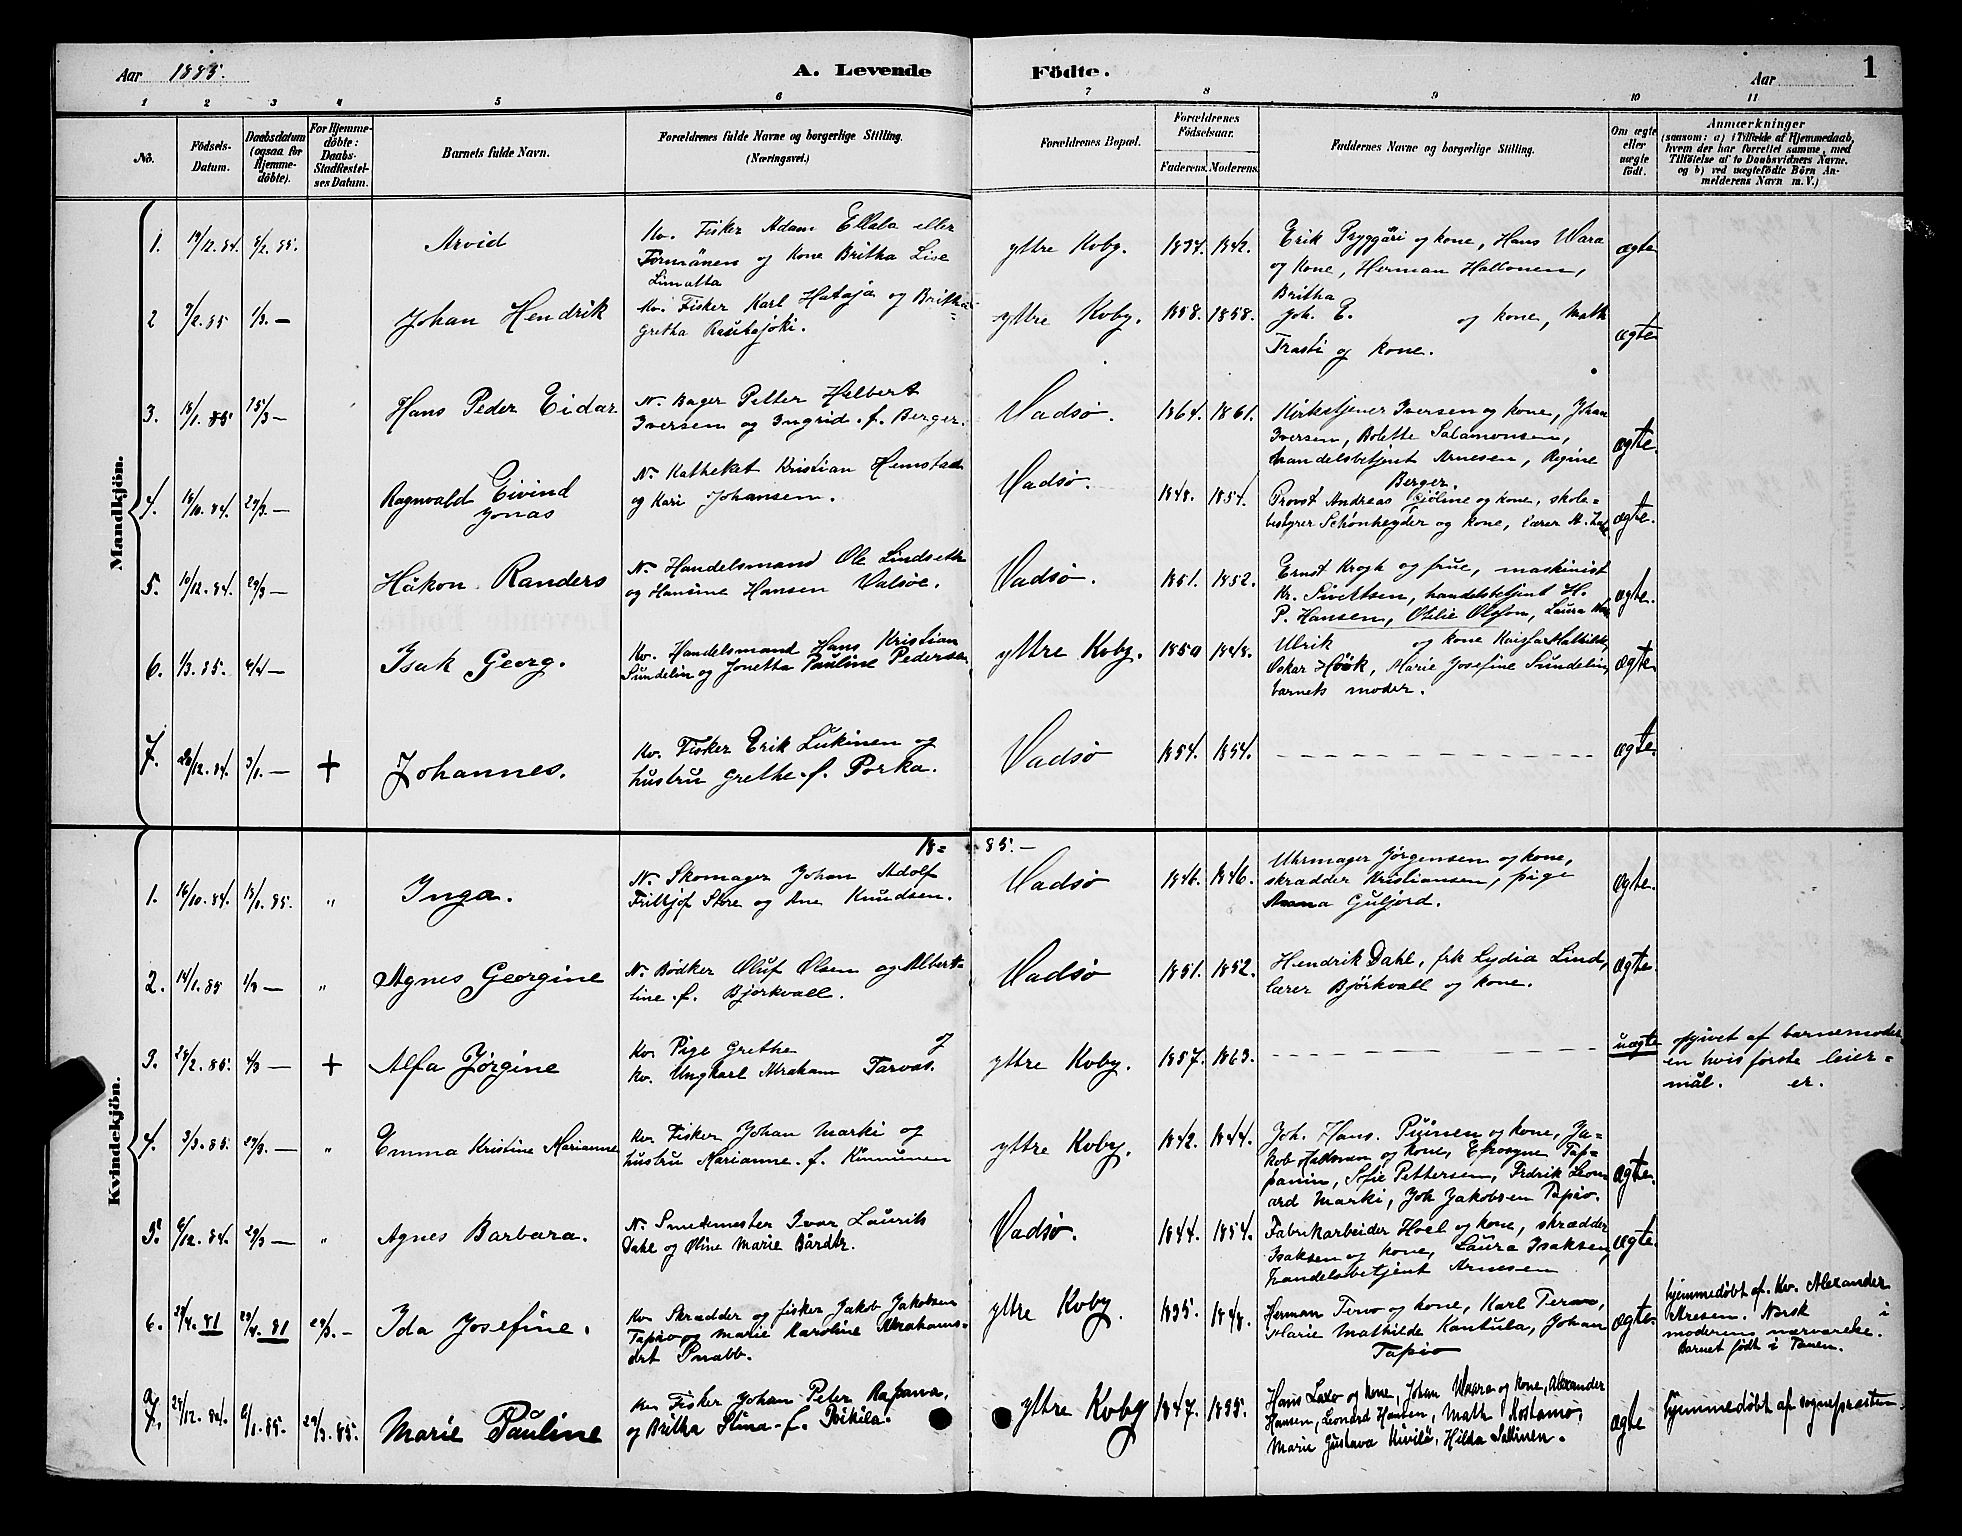 Aar 1885.
A. Levende Födte.
Aar
1
1 2 3 4 5 6 7 8 9 10 11
No.
Födsels-Datum.
Daabsdatum (ogsaa for Hjemme-döbte).
For Hjemme-döbte: Daabs-Stadfæstel-ses Datum.
Barnets fulde Navn.
Forældrenes fulde Navne og borgerlige Stilling.
(Næringsvei.)
Forældrenes Bopæl.
Forældrenes Födselsaar.
Faderens. Moderens.
Faddernes Navne og borgerlige Stilling.
Om ægte eller uægte födt.
Anmærkninger
(saasom: a) i Tilfælde af Hjemmedaab, hvem der har forrettet samme, med Tilföielse af to Daabsvidners Navne. og b) ved uægtefödte Börn An-melderens Navn m. V.)
Mandkjön.
1. 19/12.84. 8/2.85. Arvid
Kv. Fisker Adam Ellala eller
Formänen og Kone Britha Lise
Limatta
yttre Koby. 1834. 1842.
Erik Pryggäri og kone, Hans Wara
og Kone, Herman Hallonen,
Britha
ægte
2 7/2.85 1/3.— Johan Hendrik
Kv. Fisker Karl Hataja og Britha
Gretha Rautajoki.
yttre Koby. 1858. 1858.
Joh. E. og kone, Math
Trasti og kone.
ægte
3. 18/1.85 15/3— Hans Peder Eidar
N. Bager Petter Helbert
Iversen og Ingrid f. Berger.
Vadsø. 1864. 1861.
Kirketjener Iversen og kone, Johan
Iversen, Bolette Salamonsen,
handelsbetjent Arnesen, Regine
Berger.
ægte.
4. 18/10.84. 29/3.— Ragnvald Eivind
Jonas
N. Katheket Kristian Hemstad
og Kari Johansen.
Vadsø. 1848. 1854.
Provst Andreas Gjølme og kone, skole-
bestyrer Schønheyder og kone, lærer
ægte.
5. 10/12.84. 29/3— Håkon Randers
N. Handelsmand Ole Lindseth
og Hansine Hansen Valsøe.
Vadsø. 1851. 1852.
Ernst Krogh og frue, maskinist
Kr. Sivertsen, handelsbetjent H.
P. Hansen, Otilie Olsson, Laura
ægte.
6. 1/3.85. 4/4— Isak Georg.
Kv. Handelsmand Hans Kristian
Sundelin og Jonetta Pauline Pedersen
yttre Koby. 1850 1848.
Ulrik og kone Kaisa Mathilde,
Oskar Höök, Marie Josefine Sundelin,
barnets moder.
ægte
7. 28/12.84. 3/1.— + Johannes.
Kv. Fisker Erik Lukinen og
hustru Grethe f. Porka.
Vadsø 1854. 1854.
ægte
Kvindekjön.
18= =85.—
1. 16/10.84. 18/1.85. „ Inga.
N. Skomager Johan Adolf
Fritjof Store og Ane Knudsen.
Vadsø 1846. 1846.
Uhrmager Jørgensen og kone,
skrædder Kristiansen, pige
Anna Guljord.
ægte.
2. 14/1.85 1/3— „ Agnes Georgine
N. Bødker Oluf Olsen og Albert-
line f. Bjorkvall.
Vadsø 1851. 1852.
Hendrik Dahl, frk Lydia Lind,
lærer Björkvall og kone.
ægte.
3. 24/2.85. 4/3— + Alfa Jørgine
Kv. Pige Grethe
Kv. Ungkarl Abraham Tarvas.
yttre Koby. 1857. 1863.
uægte
opgivet af barnemoder
en hvis første leier-
mål. er.
4. 3/3.85. 29/3.— „ Emma Kristine Marianne
Kv. Fisker Johan Marki og
hustru Marianne f. Kinnunen
yttre Koby. 1842. 1844.
Joh. Hans. Puinen og kone, Ja-
kob Hallonen og kone, Efrosyne Tap-
panin, Sofie Pettersen, Fredrik Leon-
ard Marki, Joh Jakobsen Tapio.
ægte.
5. 9/12.84. 29/3— „ Agnes Barbara.
N. Smedmester Ivar Laurits
Dahl og Oline Marie Bårdtr.
Vadsø. 1844. 1854.
Fabrikarbeider Hoel og kone, skrædder
Isaksen og kone, Laura Isaksen,
handelsbetjent Arnesen
ægte.
6. 27/4.81 29/4.81 29/3.— Ida Josefine.
Kv. Skrædder og fisker Jakob Jakobsen
Tapio og Marie Karoline Abrahams-
drt Pnabb.
yttre Koby. 1835. 1848.
Herman Tervo og kone, Karl Tervo,
Marie Mathilde Kantula, Johan
Tapio
ægte
hjemmedøbt af Kv. Alexander
Akresen. Norsk i
moderens nærværelse.
Barnet født i Tanen.
7. 29/12.84. 9/1.85. 29/3.85. Marie Pauline
Kv Fisker Johan Peter Rapana,
og Britha Stina f. Poikila.
yttre Koby 1847. 1835.
Hans Laxo og kone, Johan Waara og kone, Alexander
Hansen, Leonard Hansen, Math Kostamo,
Marie Gustava Kivilö, Hilda Sallinen.
ægte
hjemmedøbt af sognepræsten